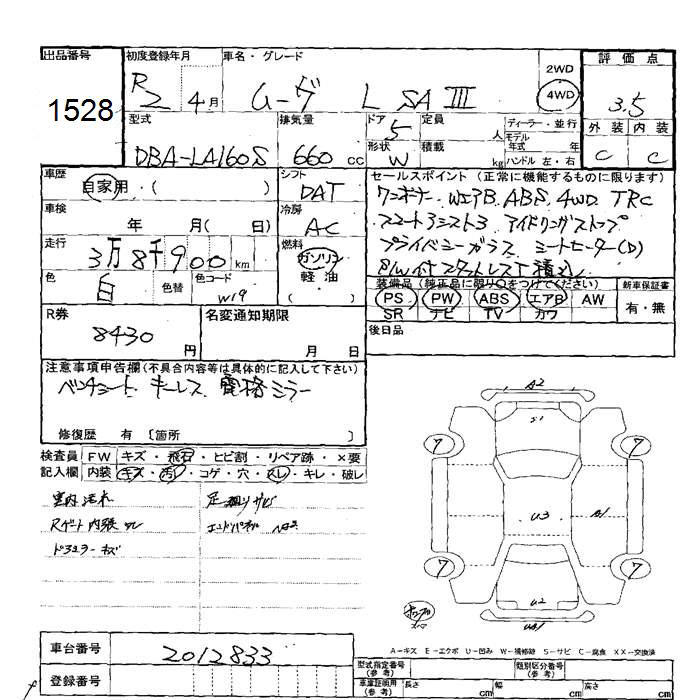 出品番号 初度登録年月 車名・グレード 評価点
1528 R2 4月 ムーヴ L SAIII 2WD 4WD 3.5
型式 排気量 ドア 定員 ディーラー・並行 外装 内装
DBA-LA160S 660cc 5 人 モデル年式 年 C C
形状 W 積載 kg ハンドル 左・右
車歴 自家用・( ) シフト DAT セールスポイント (正常に機能するものに限ります)
車検 年 月( 日) 冷房 AC ワンオーナー. WエアB. ABS. 4WD. TRC
走行 3万8千900km 燃料 ガソリン 軽油 ( ) スマートアシスト3 アイドリングストップ
色 白 色替 色コード W19 プライバシーガラス シートヒーター(D)
P/W付スタットレスT積込
装備品 (純正品に限り○をつけてください) 新車保証書
PS PW ABS エアB AW 有・無
SR ナビ TV カワ
R券 8430円 名変通知期限 月 日 後日品
注意事項申告欄(不具合内容等は具体的に記入して下さい)
ベンチシート. キーレス. 電格ミラー
修復歴 有 〔箇所 〕
検査員 FW キズ・飛石・ヒビ割・リペア跡・×要
記入欄 内装 キズ・汚れ・コゲ・穴・スレ・キレ・破レ
室内 足廻りサビ
Rゲート内張スレ エンドパネル
キズ
A2
S1
7 7
U3 A1
7 7
U2
A-キズ E-エクボ U-凹み W-補修跡 S-サビ C-腐食 XX-交換済
車台番号 2012833
型式指定番号 (参考) 類別区分番号 (参考)
登録番号 車庫証明用 (参考) 長さ cm 幅 cm 高さ cm